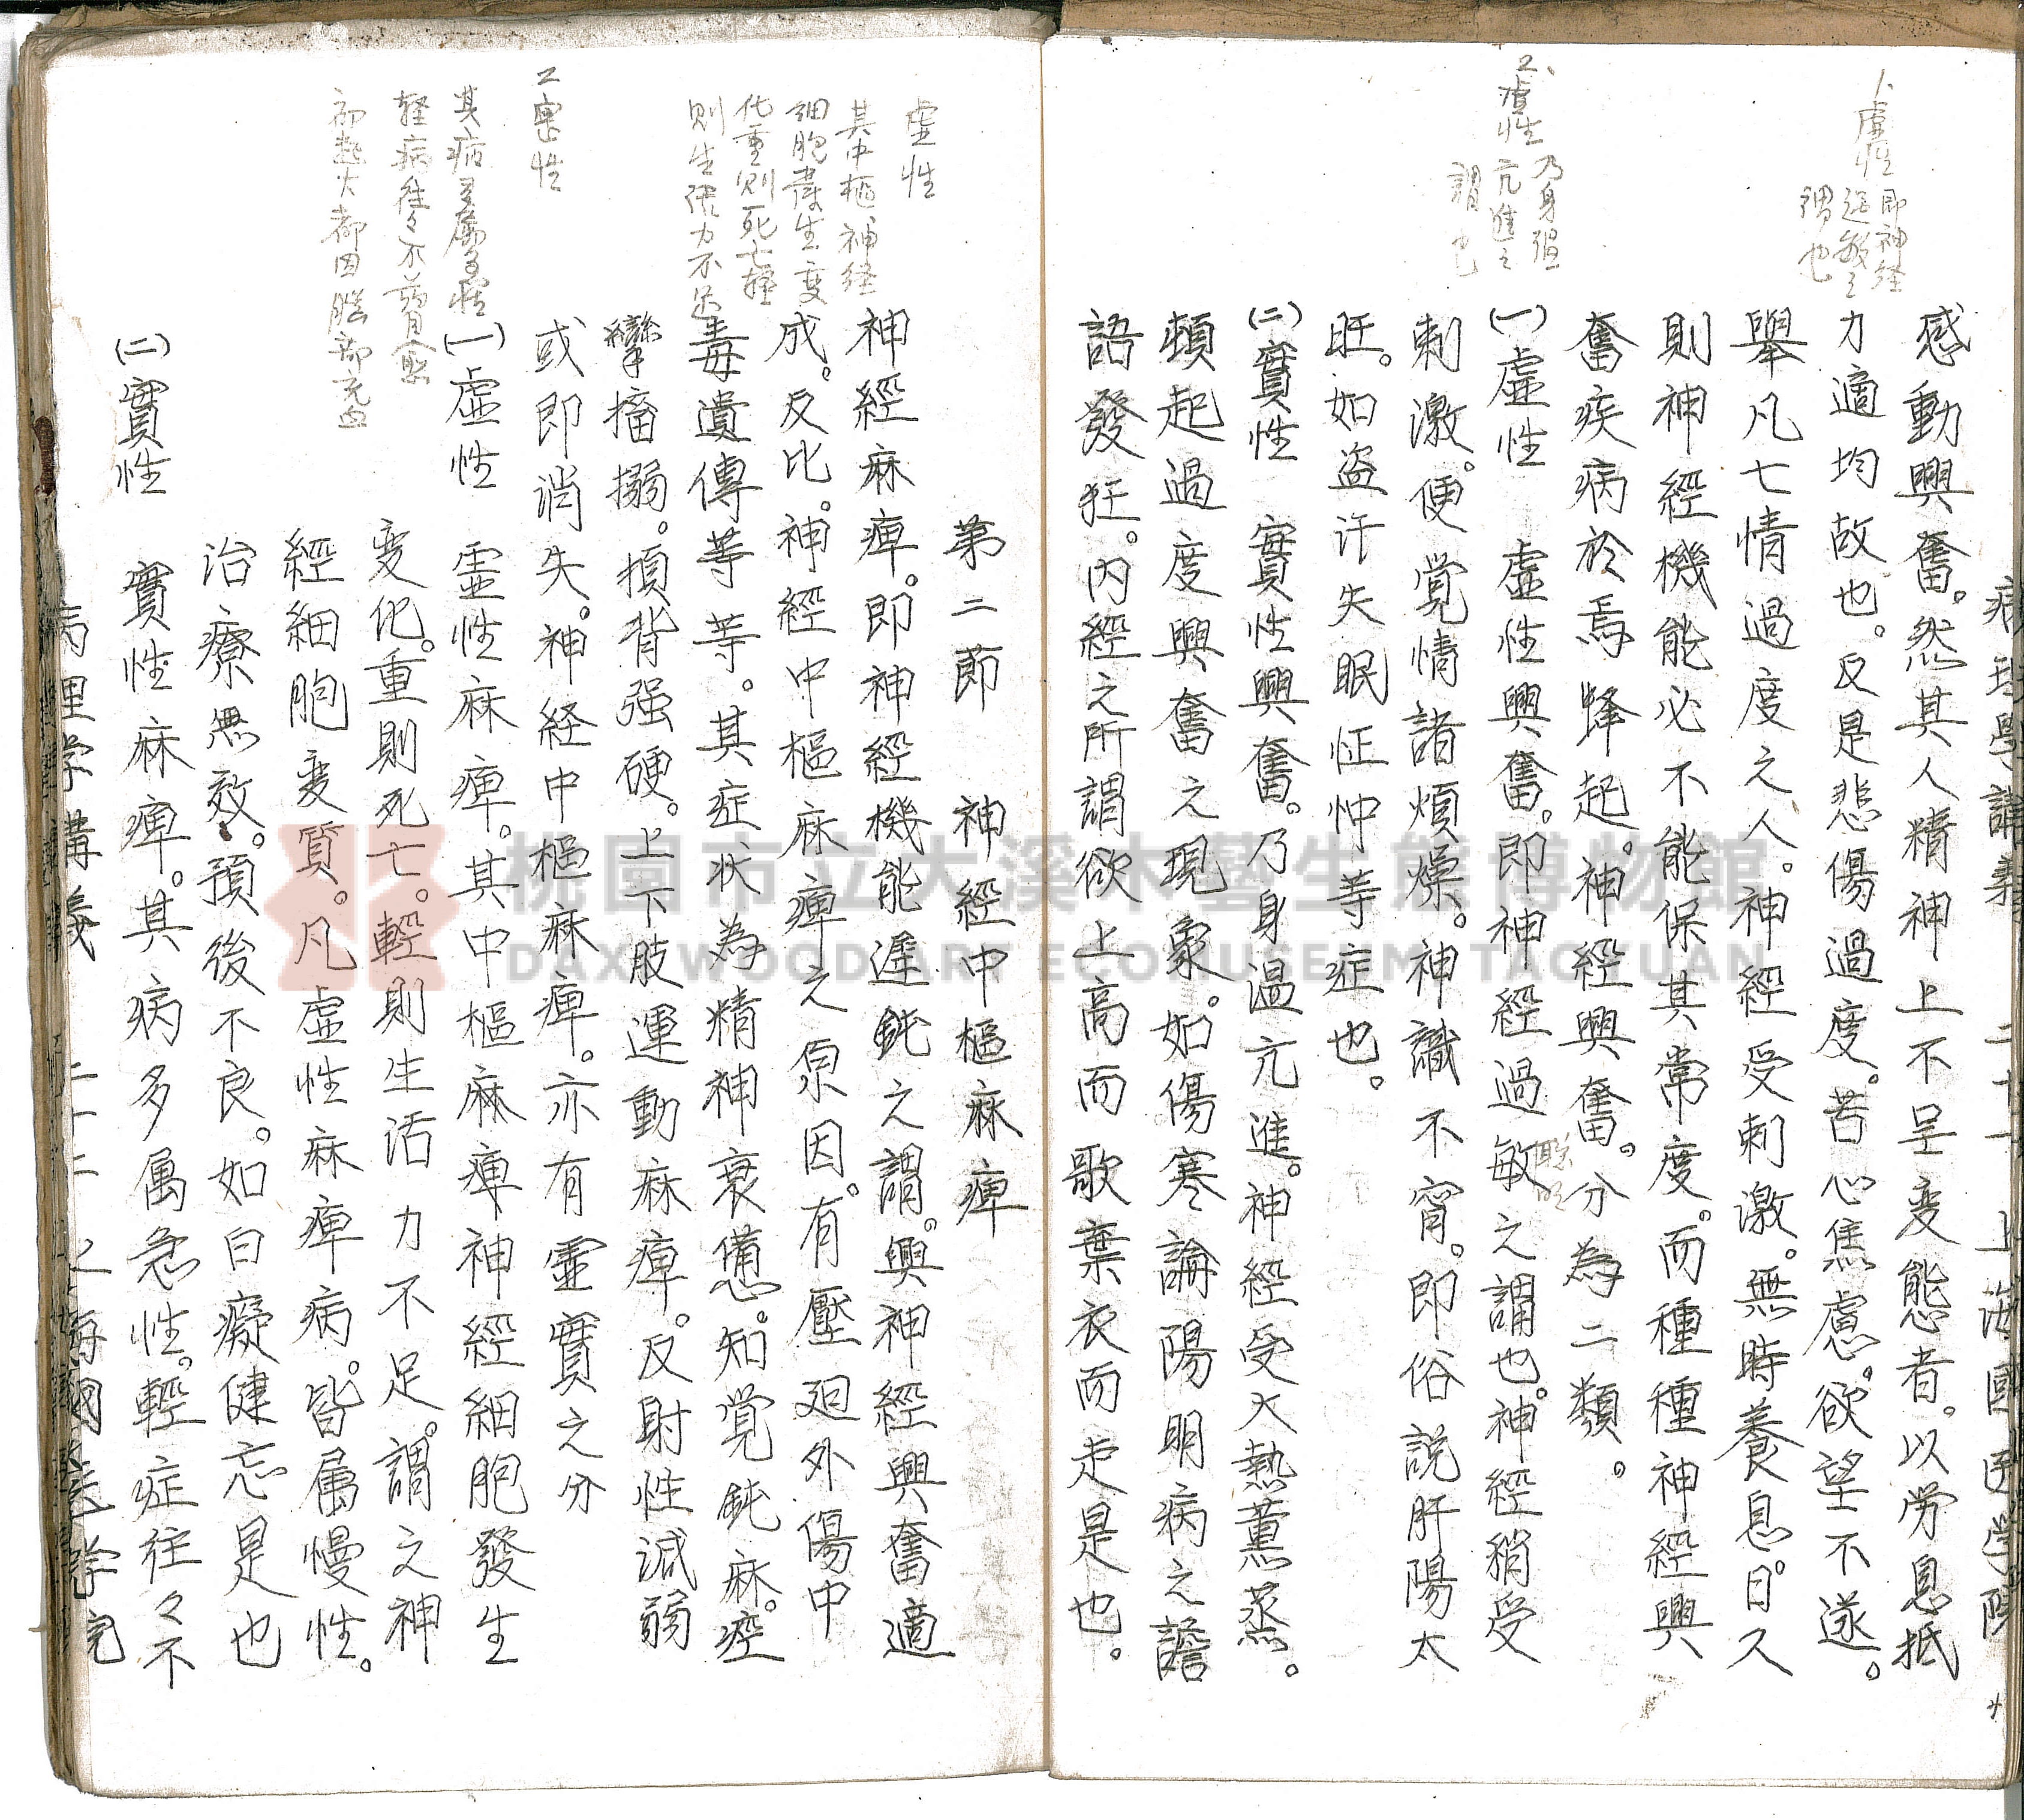 病理學講義 二十一 上海國医学院
感動興奮。然其人精神上不呈变態者。以労息抵
力適均故也。反是悲傷過度。苦心焦慮。欲望不遂。
舉凡七情過度之人。神經受刺激。無時養息。日久
則神經機能必不能保其常度。而種種神經興
奮疾病於焉蜂起。神經興奮。分為二類。
㈠虛性 虛性興奮。即神經過敏之謂也。神經稍受
刺激。便覚情諸煩燥。神識不甯。即俗説肝陽太
旺。如盗汗失眠怔忡等症也。
㈡實性 實性興奮。乃身温亢進。神經受大熱薰蒸。
頓起過度興奮之現象。如傷寒論陽明病之譫
語發狂。内經之所謂欲上高而歌棄衣而走是也。
1、虛性 即神経
过敏之
謂也
2、實性 乃身温
亢進之
謂也
第二節 神經中樞麻痺
神經麻痺。即神經機能遲鈍之謂。與神經興奮適
成。反比。神經中樞麻痺之原因。有壓廻外傷中
毒遺傳等等。其症状為精神衰憊。知覚鈍麻。痙
攣搐搦。項背强硬。上下肢運動麻痺。反射性減弱
或即消失。神経中樞麻痺。亦有靈實之分
㈠虛性 靈性麻痺。其中樞麻痺神經細胞發生
变化。重則死亡。輕則生活力不足。謂之神
經細胞变質。凡虛性麻痺病。皆属慢性。
治療無效。預後不良。如白癡健忘是也
㈡實性 實性麻痺。其病多属急性。輕症往々不
虛性
其中樞神経
細胞發生变
化重則死亡輕
則生活力不足
2實性
其病多属急性
輕病往々不藥自愈
初起大都因腦部充血
病理学講義 二十二 上海國医学院